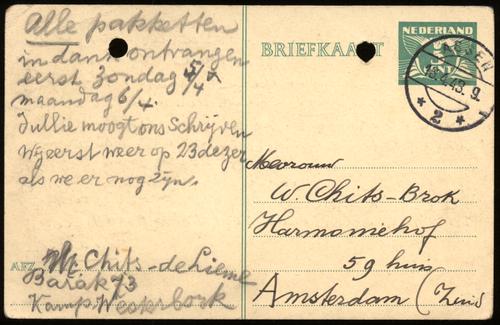 Alle pakketten
in dank ontvangen
eerst zondag 5/4
maandag 6/4.
Jullie moogt ons schrijven
wy eerst weer op 23 dezer
als we er nog zyn.
AFZ. Chits-de Lieme
Barak 73
Kamp Westerbork
BRIEFKAART
NEDERLAND
ASSEN
43. 9.
* 2 *
Mevrouw
W. Chits-Brok
Harmoniehof
59 huis
Amsterdam (Zuid)